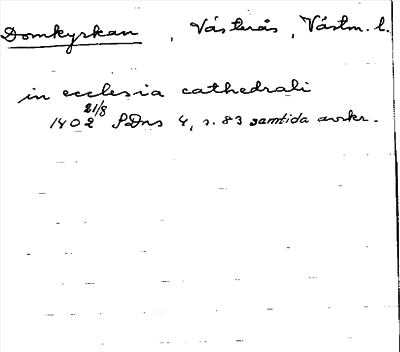 Domkyrkan, Västerås, Västm. l.
in ecclesia cathedrali
1402 21/8 SDns 4, s. 83 samtida avskr.